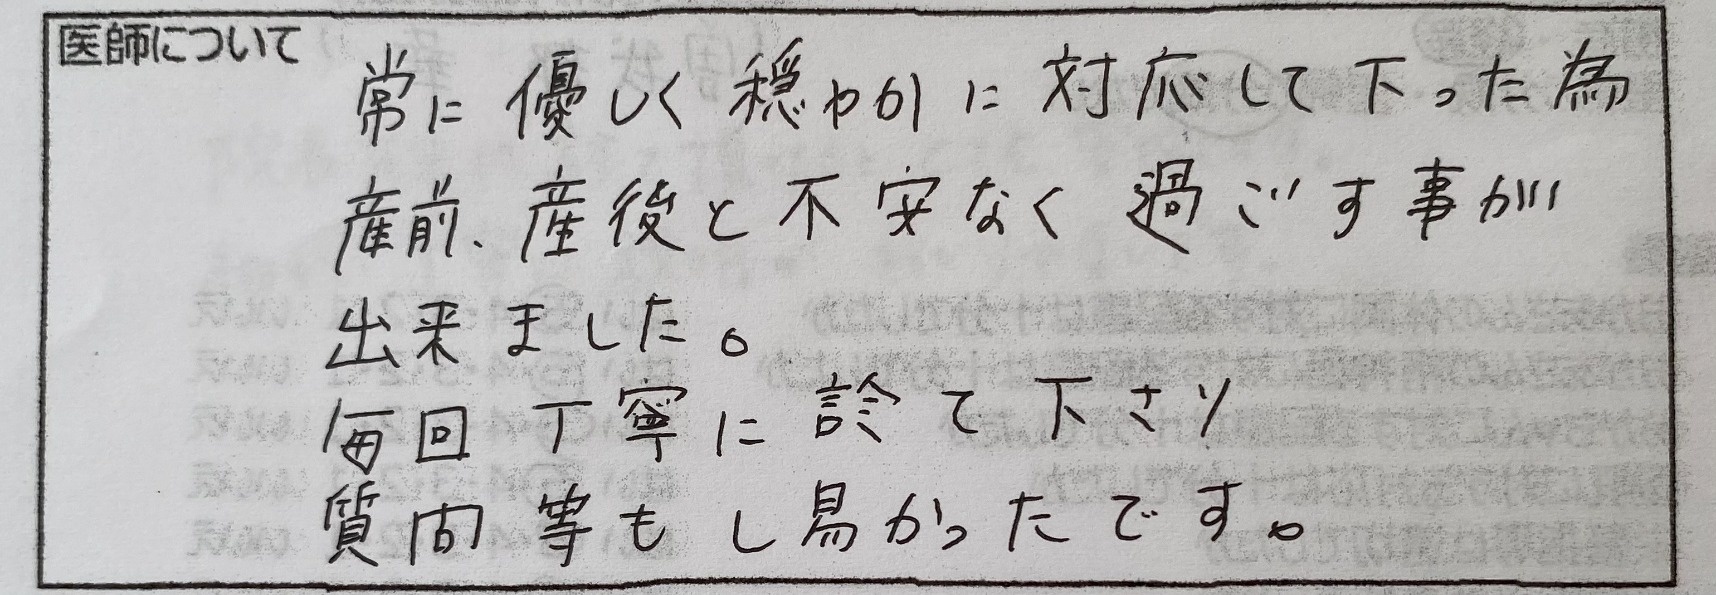 医師について
常に優しく穏やかに対応して下った為
産前、産後と不安なく過ごす事が
出来ました。
毎回丁寧に診て下さり
質問等もし易かったです。